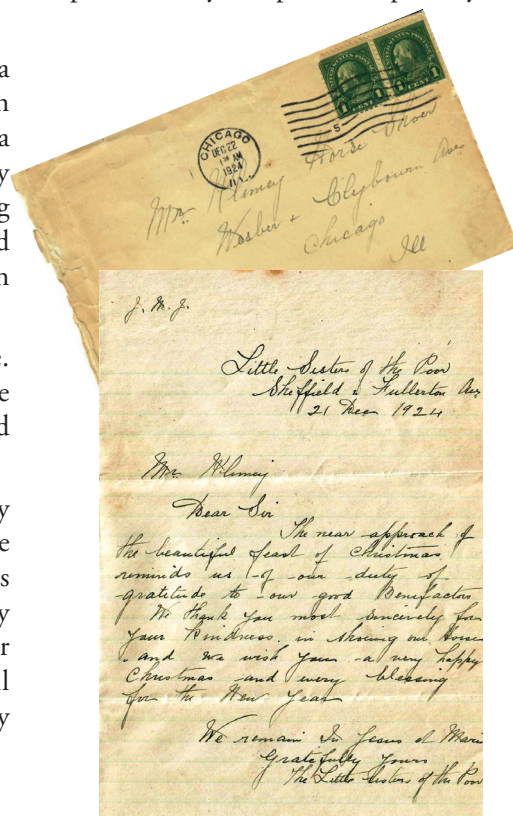 CHICAGO
DEC 22
AM
1924
ILL.
UNITED STATES POSTAGE
1 CENT 1
UNITED STATES POSTAGE
1 CENT 1
Mr. Klimey Horse Shoer
& Clybourn Ave
Chicago
Ill
J. M. J.
Little Sisters of the Poor
Sheffield & Fullerton Ave
21 Dec 1924
Mr Klimey
Dear Sir
The near approach of
the beautiful feast of Christmas
reminds us of our duty of
gratitude to our good Benefactors
We thank you most sincerely for
your Kindness in shoeing our Horse
and we wish you a very happy
Christmas and every blessing
for the New Year
We remain In Jesus et Marie
Gratefully Yours
The Little Sisters of the Poor